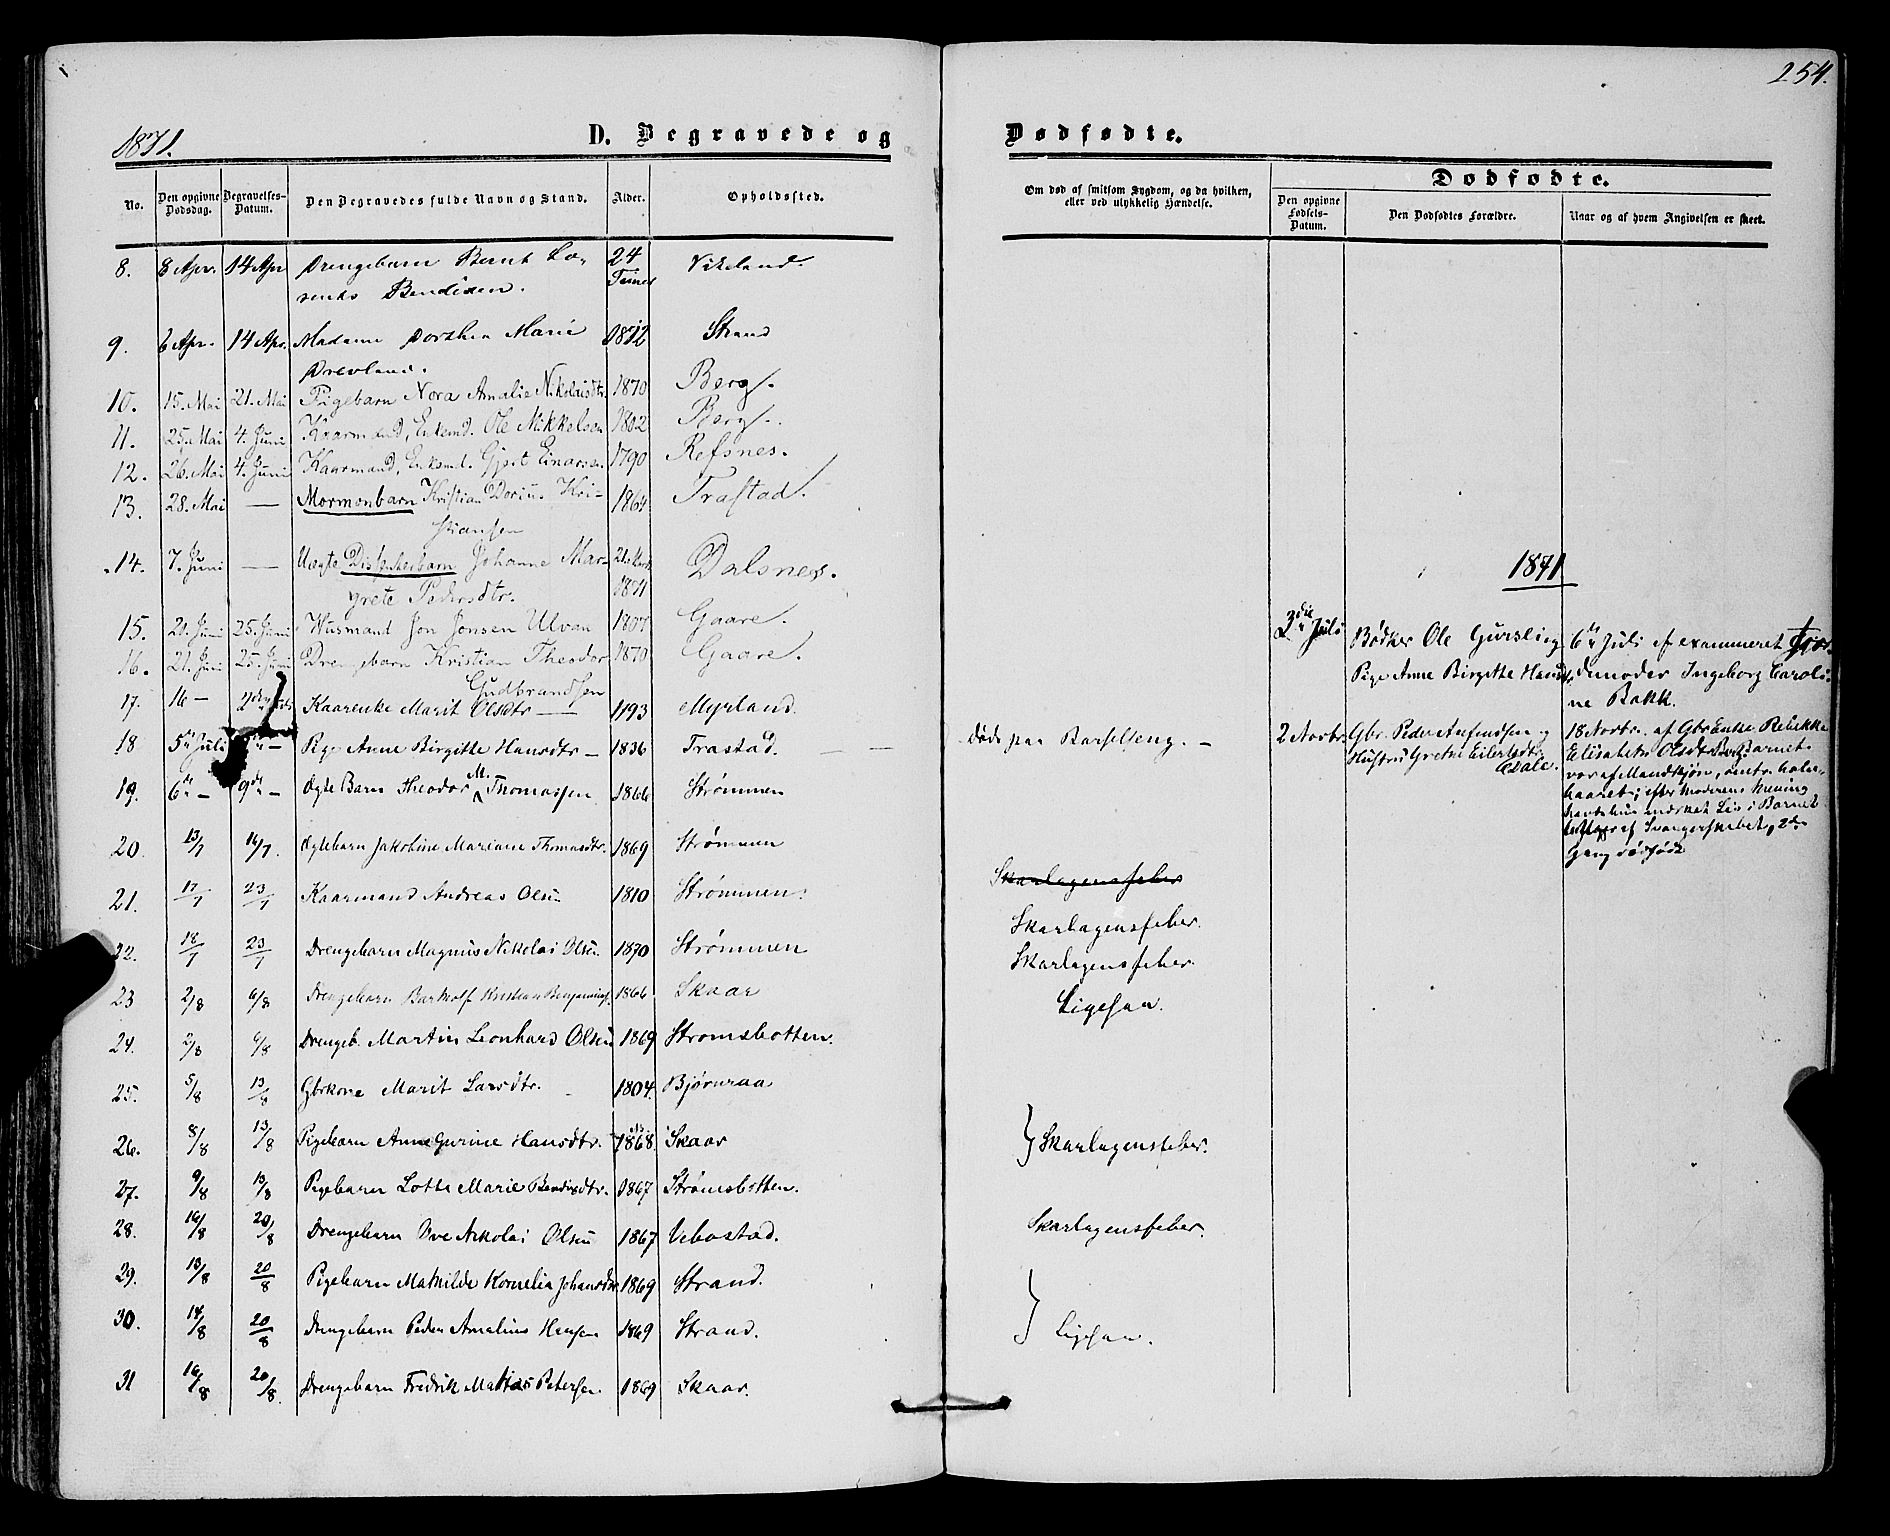 254.
1871.
D. Begravede og
Dødfødte.
No.
Den opgivne Dødsdag.
Begravelses-Datum.
Den Begravedes fulde Navn og Stand.
Alder.
Opholdssted.
Om død af smitsom Sygdom, og da hvilken, eller ved ulykkelig Hændelse.
Dødfødte.
Den opgivne Fødsels-Datum.
Den Dødfødtes Forældre.
Naar og af hvem Angivelsen er skeet.
8. 8 Apr. 14 Apr Drengebarn Bernt Lo- 24 Vikeland.
rents Bendixen. Timer
9. 6 Apr. 14 Apr. Madame Dorthea Marie 1812 Strand
Drevland.
10. 15. Mai 21. Mai Pigebarn Nora Amalie Nikolaisdtr. 1870 Berg.
11. 25. Mai 4. Juni Kaarmand, Enkemd. Ole Mikkelsen 1802 Berg.
12. 26. Mai 4. Juni Kaarmand, Enkemd. Gjert Einarsen 1790 Refsnes.
13. 28. Mai — Mormonbarn Kristian Dorius Kri- 1864 Trastad.
stiansen
14. 7. Juni — Uægte Dissenterbarn Johanne Mar- Dalsnes.
grete Pedersdtr. 1871
15. 21. Juni 25. Juni Husmand Jon Jonsen Ulvan 1807 Gaare.
16. 21. Juni 25. Juni Drengebarn Kristian Theodor 1870 Gaare.
Gudbrandsen
17. 16 — Kaarenke Marit Olsdtr — 1793 Myrland.
18 5te Juli Pige Anne Birgitte Hansdtr — 1836 Trastad. — — Døde paa Barselseng. —
19. 6te — 9de — Ægte Barn Theodor M. Thomassen 1866 Strømmen
20. 13/7 16/7. Ægtebarn Jakobine Mariane Thomasdtr. 1869 Strømmen
21. 17/7 23/7 Kaarmand Andreas Olsen 1810 Strømmen. Skarlagensfeber
22. 18/7 23/7 Drengebarn Magnus Nikolai Olsen 1870 Strømmen Skarlagensfeber.
Skarlagensfeber.
23 2/8 6/8 Drengebarn Bartholf Kristian Benjaminsen 1866 Skaar Ligesaa.
24. 2/8 6/8 Drengeb. Martin Leonhard Olsen 1869 Strømsbotten.
25. 5/8 13/8 Gbrkone Marit Larsdtr. 1804. Bjørnraa
26. 8/8 13/8 Pigebarn Anne Gurine Hansdtr. 1868. Skaar } Skarlagensfeber.
27. 9/8 13/8 Pigebarn Lotte Marie Bendixdtr. 1867 Strømsbotten.
28. 16/8 20/8 Drengebarn Ove Nikolai Olsen 1867 Vebostad. Skarlagensfeber.
29. 13/8 20/8 Pigebarn Mathilde Kornelia Johansdtr. 1869 Strand.
30. 14/8 20/8 Drengebarn Peder Amalius Hansen 1869 Strand. } Ligesaa.
31 16/8 20/8. Drengebarn Fredrik Mathias Petersen. 1869 Skaar.
1871
Juli Bødker Ole Gursling 6te Juli af examineret Jor-
Pige Anne Birgitte Hansdtr. demoder Ingeborg Caroli-
ne Bakk.
2 Novbr. Gbr. Peder Amundsen og 18 Novbr. af Gbr.Enke Rebekka
Hustru Grethe Eilertsdtr. Elisabeth Olsdtr Barnet
Dale. var af Mandkjøn,
haaret; efter Moderens Mening
havde hun mærket Liv i Barnet
af Svangerskabet, 2den
Gang dødfødt